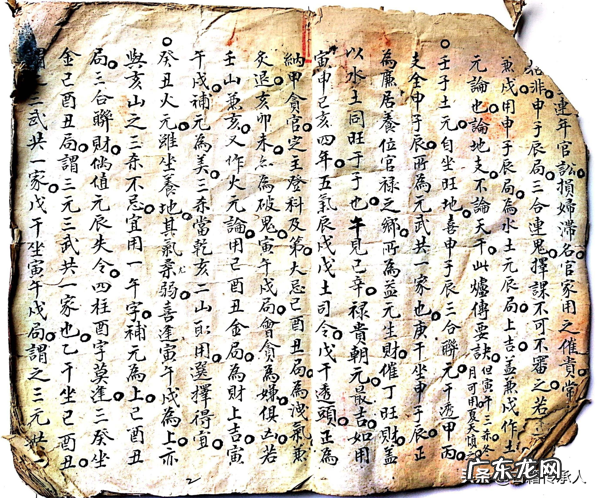 連年官訟損婦滯名官家用之催貴
非申子辰局三合連鬼擇課不可不審之若
兼戌用申子辰局為水土元辰局上吉益兼戌作土
元論也論地支不論天干此爐傳要訣但寅午三赤
月可用夏天
壬子土元自坐旺地喜申子辰三合聯元干透甲丙
支全申子辰所為元武共一家也庚午坐申子辰正
為廉居養位官祿之鄉所為益元生財催丁旺財蓋
以水土同旺于子也午見己辛祿貴朝元最吉如用
寅申巳亥四年五氣辰戌戊土司令戊干透頭正為
納甲貪官定主登科及第大忌巳酉丑局為洩氣兼
灸退亥卯未為破鬼寅午戌局會貪為嫌俱凶若
壬山兼亥又作火元論用巳酉丑金局為財上吉寅
午戌補元為美三赤當乾亥二山所用選擇得宜
癸丑火元雖坐養地其氣柔弱喜逢寅午戌為上亦
與亥山之三赤不忌宜用一午字補元為上巳酉丑
局三合聯財倘值元辰失令四柱酉字莫逢三癸坐
金巳酉丑局謂三元三武共一家也乙干坐巳酉丑
謂三武共一家戊干坐寅午戌局謂之三元
2
广东龙网